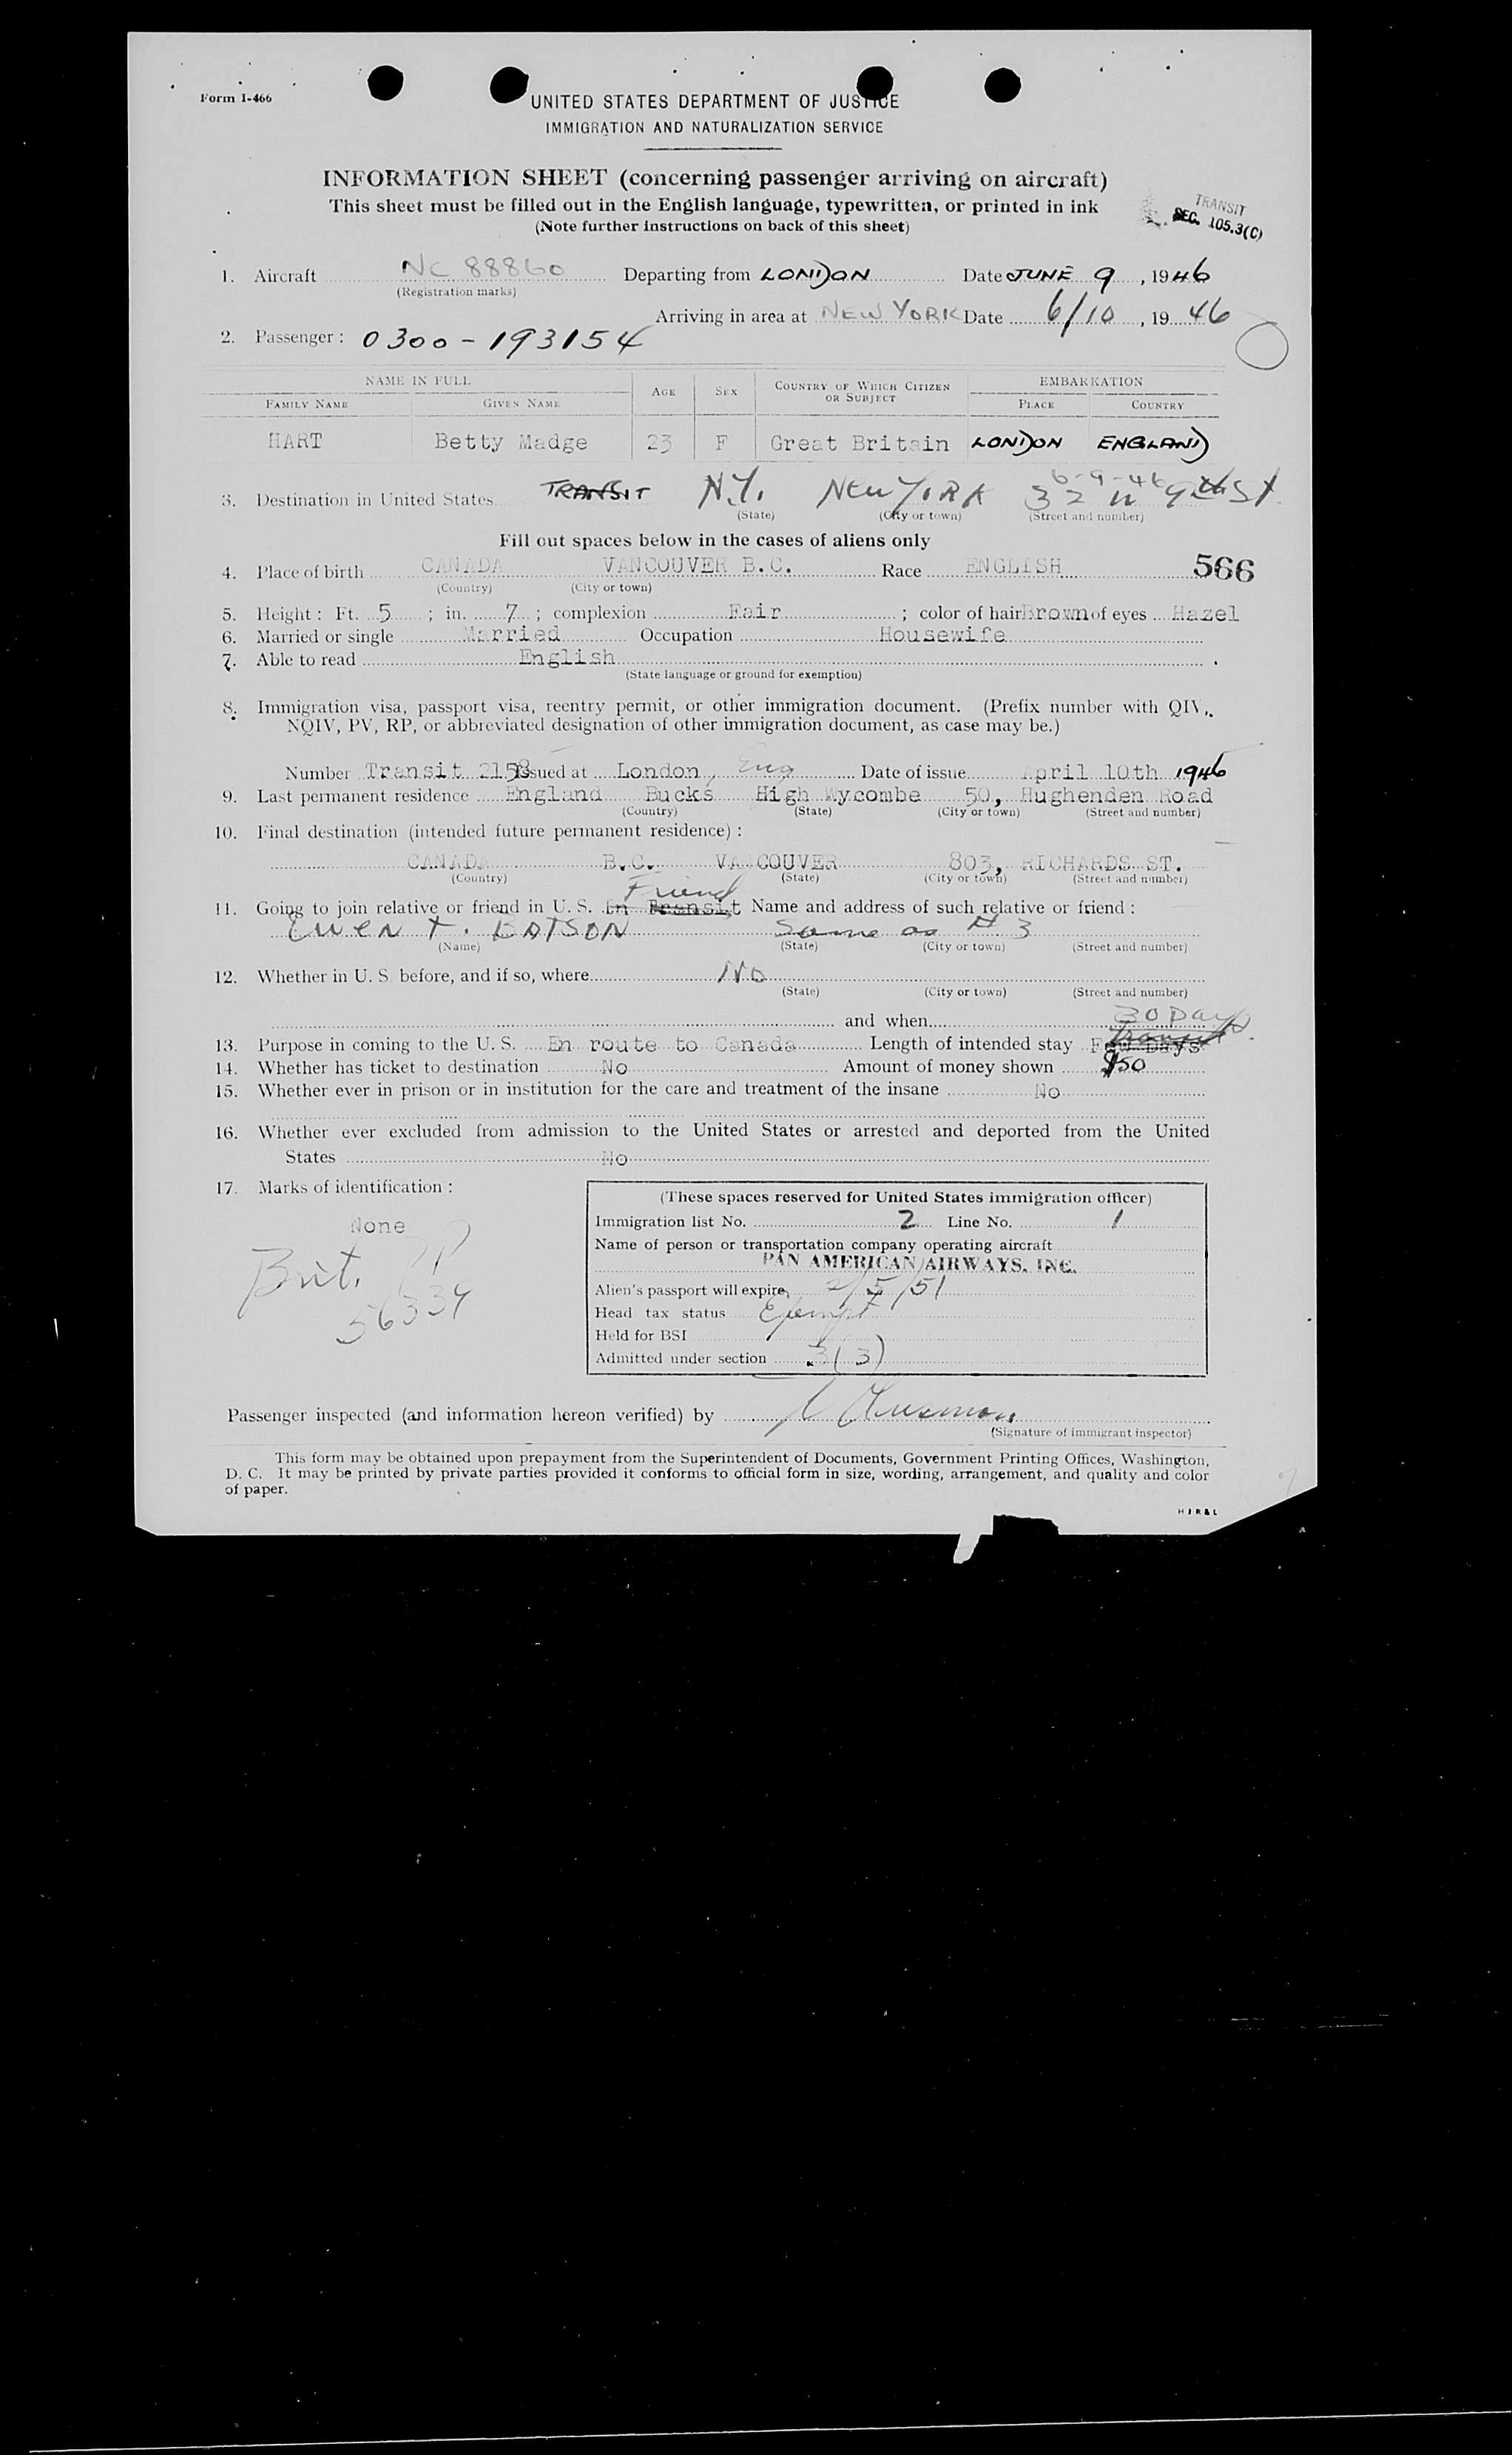 Form I-466
UNITED STATES DEPARTMENT OF JUSTICE
IMMIGRATION AND NATURALIZATION SERVICE
INFORMATION SHEET (concerning passenger arriving on aircraft)
This sheet must be filled out in the English language, typewritten, or printed in ink
(Note further instructions on back of this sheet)
TRANSIT
SEC. 105.3(C)
1. Aircraft NC 88860 Departing from LONDON Date JUNE 9, 1946
(Registration marks)
Arriving in area at NEW YORK Date 6/10, 19 46
2. Passenger: 0300-193154
NAME IN FULL AGE SEX COUNTRY OF WHICH CITIZEN OR SUBJECT EMBARKATION
FAMILY NAME GIVEN NAME PLACE COUNTRY
HART Betty Madge 23 F Great Britain LONDON ENGLAND
6-9-46
3. Destination in United States TRANSIT N.Y. NEW YORK 32 W 9th St
(State) (City or town) (Street and number)
Fill out spaces below in the cases of aliens only
4. Place of birth CANADA VANCOUVER B.C. Race ENGLISH 566
(Country) (City or town)
5. Height: Ft. 5; in. 7; complexion Fair; color of hair Brown of eyes Hazel
6. Married or single Married Occupation Housewife
7. Able to read English.
(State language or ground for exemption)
8. Immigration visa, passport visa, reentry permit, or other immigration document. (Prefix number with QIV,
NQIV, PV, RP, or abbreviated designation of other immigration document, as case may be.)
Number Transit 2158 Issued at London, Eng Date of issue April 10th 1946
9. Last permanent residence England Bucks High Wycombe 50, Hughenden Road
(Country) (State) (City or town) (Street and number)
10. Final destination (intended future permanent residence):
CANADA B.C. VANCOUVER 803, RICHARDS ST.
(Country) (State) (City or town) (Street and number)
Friend
11. Going to join relative or friend in U. S. In Transit Name and address of such relative or friend:
BATSON Same as # 3
(Name) (State) (City or town) (Street and number)
12. Whether in U. S. before, and if so, where No
(State) (City or town) (Street and number)
and when
30 Days
13. Purpose in coming to the U. S. En route to Canada Length of intended stay Few Days
14. Whether has ticket to destination No Amount of money shown $50
15. Whether ever in prison or in institution for the care and treatment of the insane No
16. Whether ever excluded from admission to the United States or arrested and deported from the United
States No
17. Marks of identification:
None
Brit. PP
56339
(These spaces reserved for United States immigration officer)
Immigration list No. 2 Line No. 1
Name of person or transportation company operating aircraft
PAN AMERICAN AIRWAYS, INC.
Alien's passport will expire 2/5/51
Head tax status Exempt
Held for BSI
Admitted under section 3(3)
Passenger inspected (and information hereon verified) by
(Signature of immigrant inspector)
This form may be obtained upon prepayment from the Superintendent of Documents, Government Printing Offices, Washington,
D. C. It may be printed by private parties provided it conforms to official form in size, wording, arrangement, and quality and color
of paper.
HJR&L